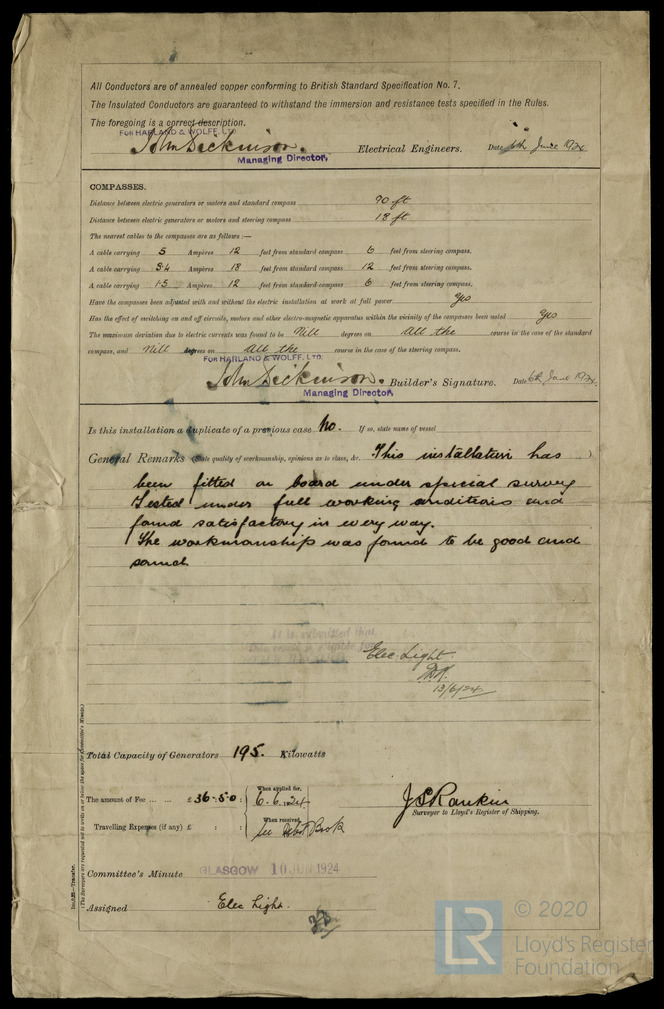 All Conductors are of annealed copper conforming to British Standard Specification No. 7.
The Insulated Conductors are guaranteed to withstand the immersion and resistance tests specified in the Rules.
The foregoing is a correct description.
FOR HARLAND & WOLFF, LTD.
John Dickinson. Electrical Engineers. Date 6th June 1924
Managing Director,
COMPASSES.
Distance between electric generators or motors and standard compass 90 ft
Distance between electric generators or motors and steering compass 18 ft
The nearest cables to the compasses are as follows :—
A cable carrying 5 Ampères 12 feet from standard compass 6 feet from steering compass.
A cable carrying 3.4 Ampères 18 feet from standard compass 12 feet from steering compass.
A cable carrying 1.5 Ampères 12 feet from standard compass 6 feet from steering compass.
Have the compasses been adjusted with and without the electric installation at work at full power Yes
Has the effect of switching on and off circuits, motors and other electro-magnetic apparatus within the vicinity of the compasses been noted Yes
The maximum deviation due to electric currents was found to be Nill degrees on All the course in the case of the standard
compass, and Nill degrees on All the course in the case of the steering compass.
FOR HARLAND & WOLFF, LTD.
John Dickinson. Builder's Signature. Date 6th June 1924.
Managing Director,
Is this installation a duplicate of a previous case No. If so, state name of vessel
General Remarks (State quality of workmanship, opinions as to class, &c. This installation has
been fitted on board under special survey
Tested under full working conditions and
found satisfactory in every way.
The workmanship was found to be good and
sound
It is submitted that
Elec. Light.
13/6/24
Total Capacity of Generators 195. Kilowatts
The amount of Fee ... ... £ 36 . 5 . 0 : When applied for, 6.6.1924
J S Rankin
Surveyor to Lloyd's Register of Shipping.
Travelling Expenses (if any) £ : : When received,
Committee's Minute GLASGOW 10 JUN 1924
Assigned Elec Light.
Im.4.22—Transfer.
(The Surveyors are requested not to write on or below the space for Committee's Minute.)
LR © 2020
Lloyd's Register
Foundation